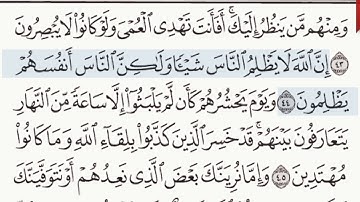 وَمِنْهُم مَّن يَنظُرُ إِلَيْكَ ۚ أَفَأَنتَ تَهْدِي الْعُمْيَ وَلَوْ كَانُوا لَا يُبْصِرُونَ
٤٣ إِنَّ اللَّهَ لَا يَظْلِمُ النَّاسَ شَيْئًا وَلَٰكِنَّ النَّاسَ أَنفُسَهُمْ
يَظْلِمُونَ ٤٤ وَيَوْمَ يَحْشُرُهُمْ كَأَن لَّمْ يَلْبَثُوا إِلَّا سَاعَةً مِّنَ النَّهَارِ
يَتَعَارَفُونَ بَيْنَهُمْ ۚ قَدْ خَسِرَ الَّذِينَ كَذَّبُوا بِلِقَاءِ اللَّهِ وَمَا كَانُوا
مُهْتَدِينَ ٤٥ وَإِمَّا نُرِيَنَّكَ بَعْضَ الَّذِي نَعِدُهُمْ أَوْ نَتَوَفَّيَنَّكَ